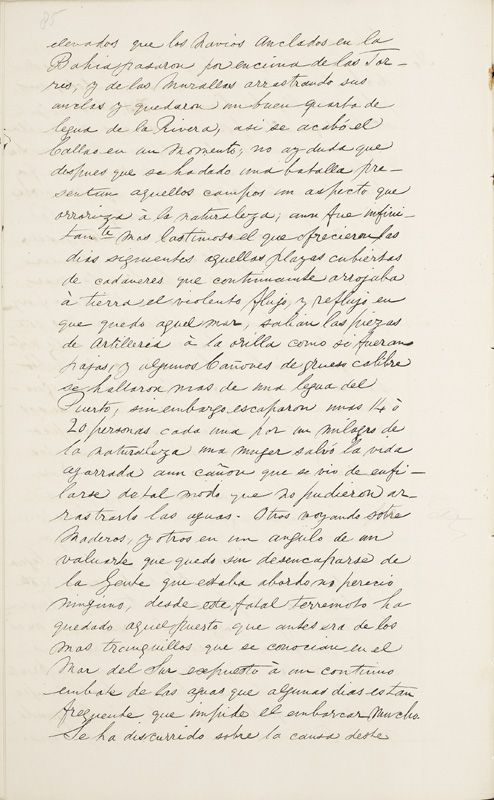 85
elevados que los Navios Anclados en la
Bahia pasaron por encima de las Tor-
res, y de las Murallas arrastrando sus
anclas y quedaron un buen quarto de
legua de la Rivera, asi se acabó el
Callao en un momento; no ay duda que
despues que se ha dado una batalla pre-
sentan aquellos campos un aspecto que
orroriza à la naturaleza; aun fue infini-
tamte mas lastimoso el que ofrecieron las
dias siguientes aquellas plazas cubiertas
de cadaveres que continuamte arrojaba
à tierra el violento flujo, y reflujo en
que quedo aquel mar, salian las piezas
de Artilleria à la orilla como si fueran
pajas, y algunos Cañones de grueso calibre
se hallaron mas de una legua del
Puerto, sin embargo escaparon unas 14 ò
20 personas cada una por un milagro de
la naturaleza una muger salvó la vida
agarrada aun cañon que se vio de enfi-
larse de tal modo que no pudieron ar-
rastrarlo las aguas. Otros nogando sobre
Maderos, y otros en un angulo de un
valuarte que quedo sin desencaparse de
la Gente que estaba abordo, no perecio
ninguno, desde este fatal terremoto ha
quedado aquel puerto que antes era de los
mas tranquillos que se conocian en el
Mar del Sur expuesto à un continuo
embate de las aguas que algunos dias es tan
freguente que impide el embarcar Mucho.
Se ha discurrido sobre la causa deste